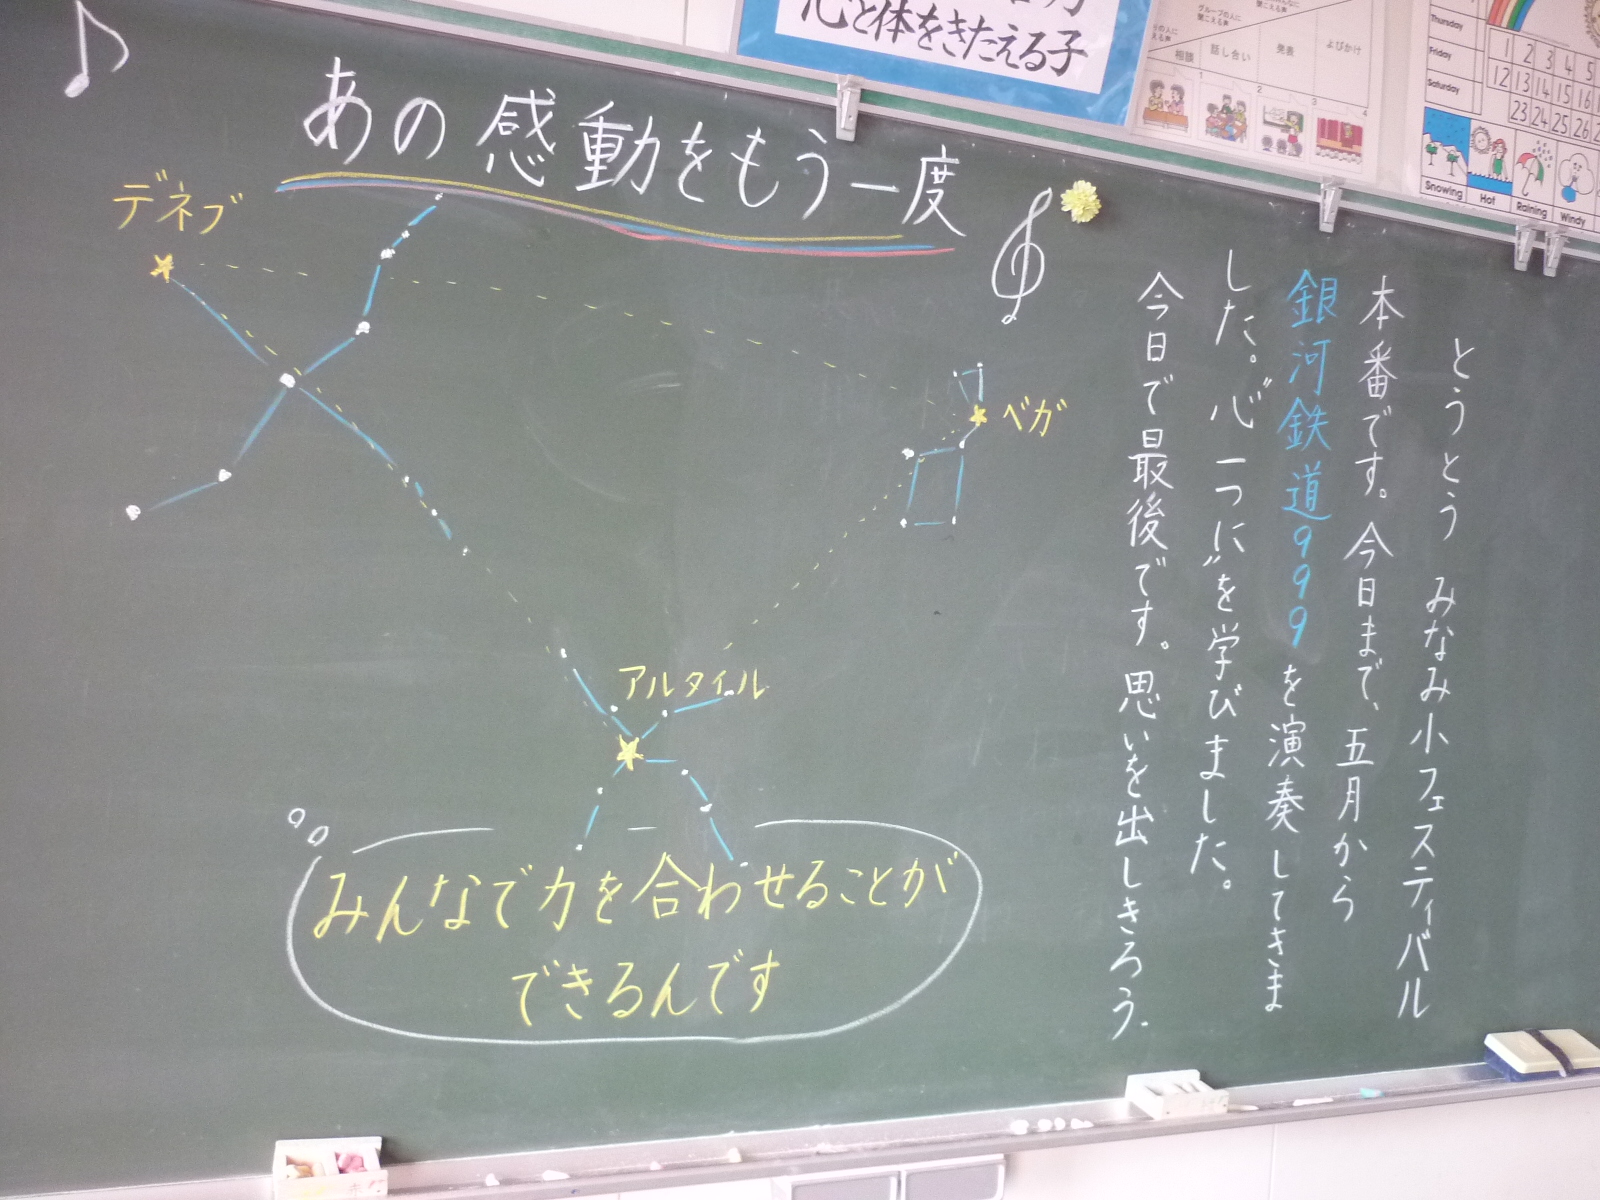 心と体をきたえる子
相談
話し合い
発表
よびかけ
1
2
3
4
Thursday
Friday
Saturday
1 2 3 4 5
12 13 14 15 16
23 24 25 26
Snowing
Hot
Raining
Windy
あの感動をもう一度
デネブ
ベガ
アルタイル
とうとう みなみ小フェスティバル
本番です。今日まで、五月から
銀河鉄道999を演奏してきま
した。“心一つに”を学びました。
今日で最後です。思いを出しきろう.
みんなで力を合わせることが
できるんです